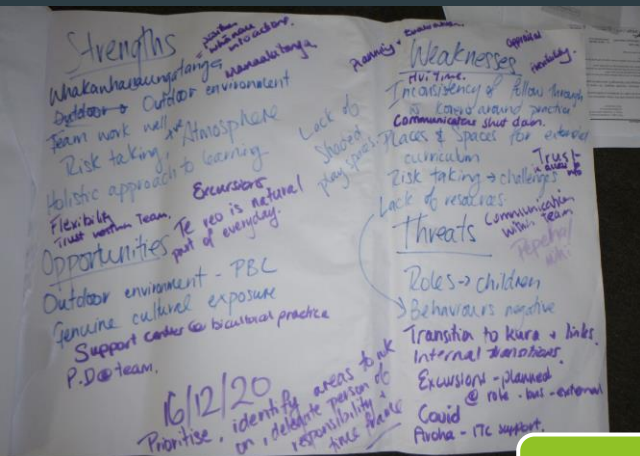 Strengths
positive
whānau
interactions.
Whakawhanaungatanga
Manaakitanga
Outdoor environment
Team work well
Atmosphere
Risk taking,
Holistic approach to learning
Excursions
Flexibility
Trust within Team.
Te reo is natural
part of everyday.
Lack of
Shaded
play spaces.
Opportunities
Outdoor environment - PBC
Genuine cultural exposure
Support center bicultural practice
P.D team.
16/12/20
Prioritise, identify areas to wk
on, delegate person of
responsibility +
time frame
Planning + Evaluation
Appraisal
Weaknesses
Hui Time.
Inconsistency of follow through
around practice
Communication shut down.
Places & Spaces for
curriculum
Trust
Risk taking → challenges
Lack of resources
Communication
within Team
Pepeha/
Threats
Roles → children
Behaviours negative
Transition to kura + links.
Internal transitions.
Excursions - planned
@ role - bus - external
Covid
Aroha - ITC support.